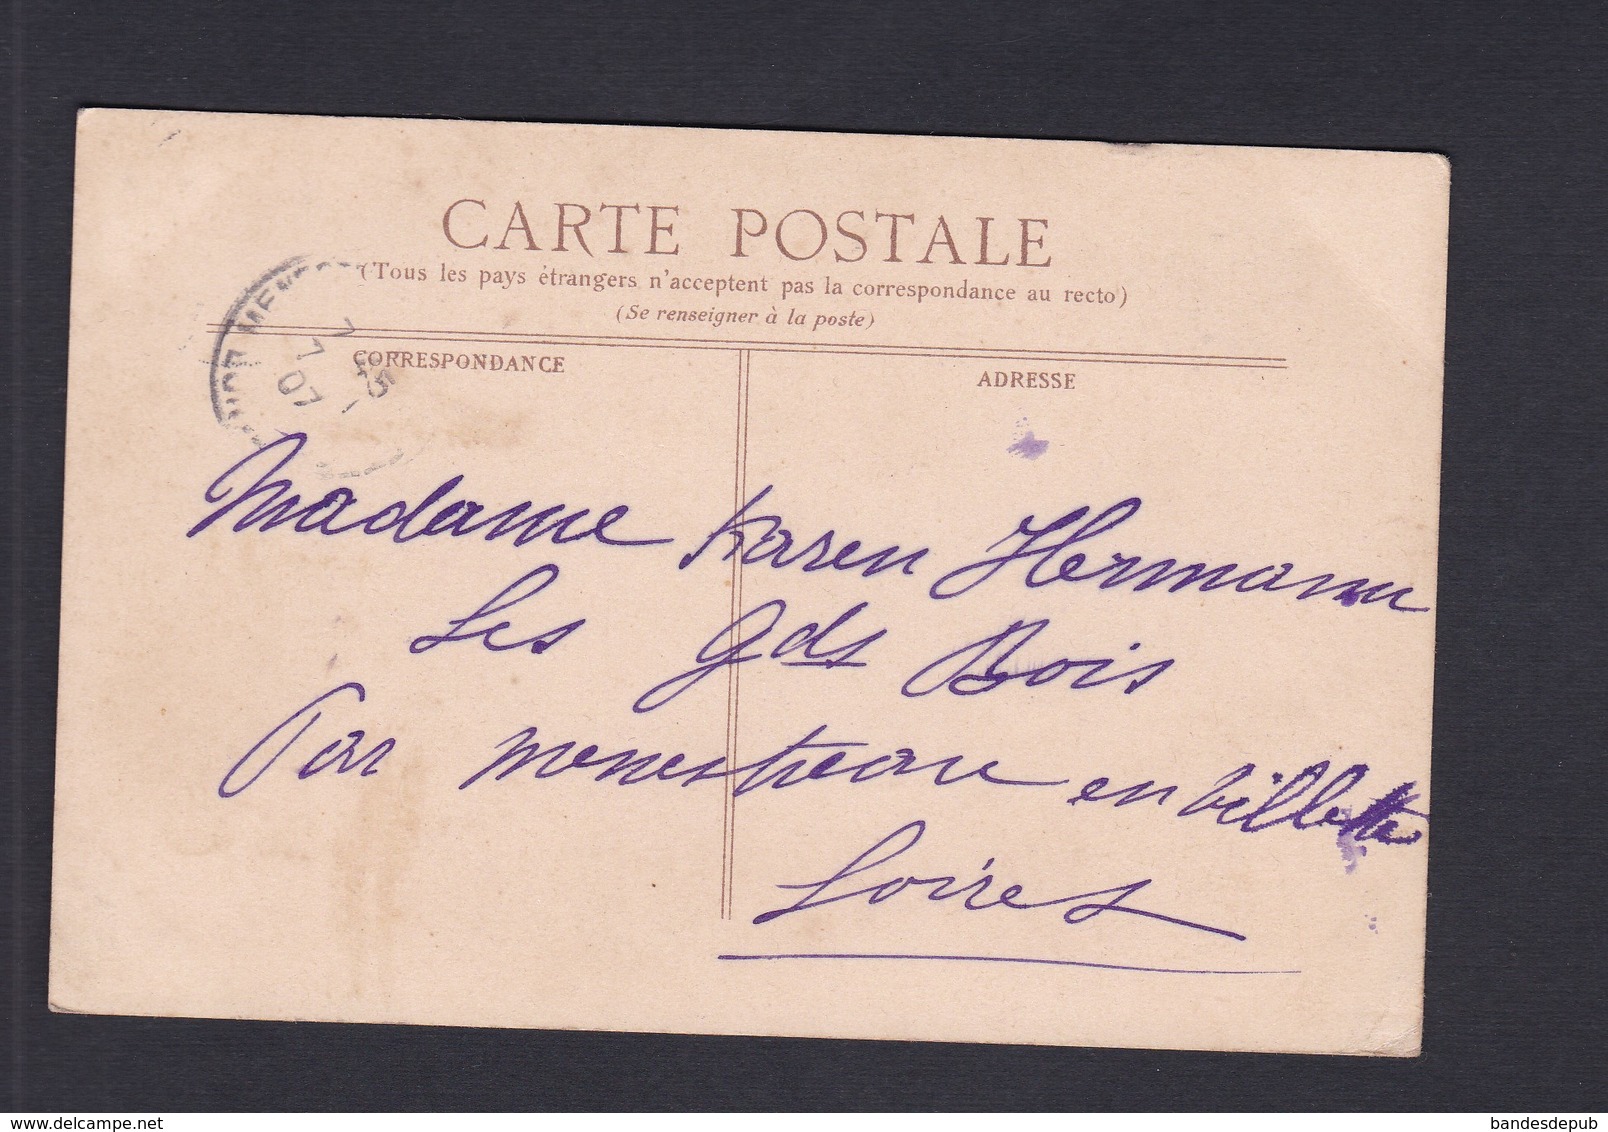 CARTE POSTALE
(Tous les pays étrangers n'acceptent pas la correspondance au recto)
(Se renseigner à la poste)
CORRESPONDANCE
ADRESSE
7 45
7
07
Madame Karen Hermann
Les Gds Bois
Par menestreau en villette
Loiret
www.delcampe.net
bandesdepub